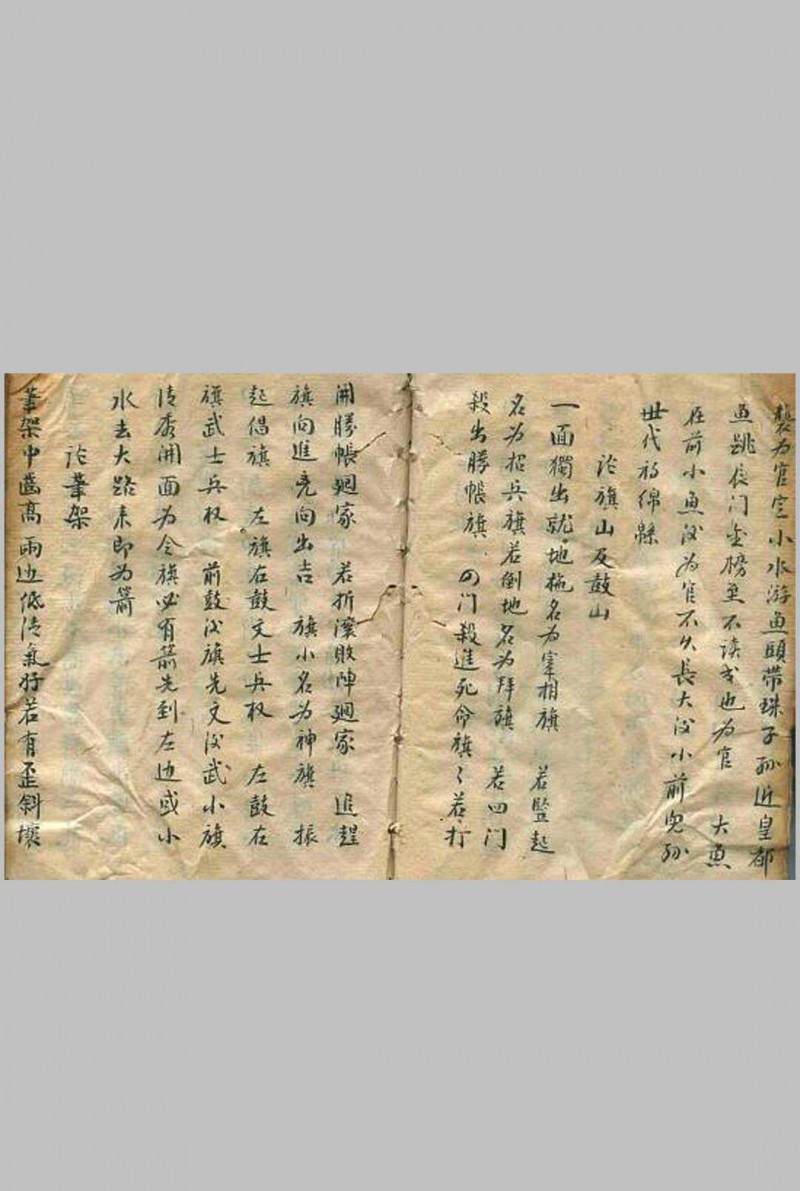 袭为官定小水游鱼頭帶珠子孙近皇都
鱼跳长门金榜至不读书也为官 大鱼
在前小鱼后为官不久長大后小前児孙
世代福绵縣
论旗山及鼓山
一面獨出就地拖名为宰相旗 若竖起
名为招兵旗若倒地名为拜旗 若四门
殺出勝帳旗 四门殺進死命旗〻若打
開勝帳廻家 若折滾敗陣廻家 追趕
旗向進兇向出吉 旗小名为神旗 振
起倡旗 左旗右鼓文士兵权 左鼓右
旗武士兵权 前鼓后旗先文后武小旗
清秀開面为令旗必有箭先到左边或小
水去大路来即为箭
论筆架
筆架中齒高兩边低清氣好若有歪斜壞